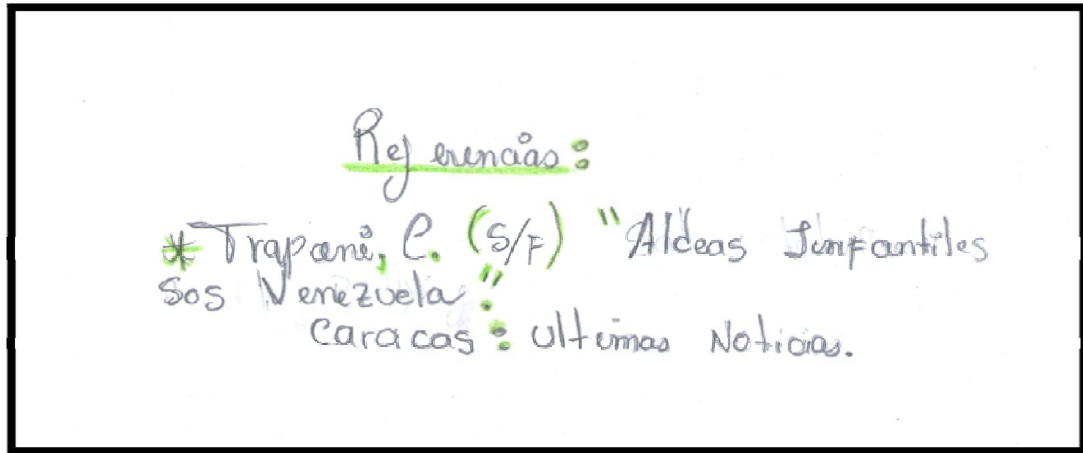 Referencias:
* Trapani, C. (S/F) "Aldeas Infantiles
Sos Venezuela".
Caracas: ultimas Noticias.